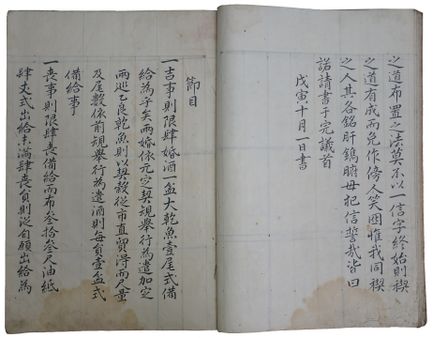 之道布置之法莫不以一信字終始則稧
之道有成而免作傍人笑惟我同稧
之人其各銘肝鏤腑毋把信誓哉皆曰
諾請書于完議首
戊寅十月一日書
節目
一吉事則限肆婚酒一盆大乾魚壹尾式備
給為乎矣兩婚依元定契規舉行為遣加定
兩巡乙良乾魚則以契穀從市直貿得而尺量
及尾數依前規舉行為遣酒則每員壹盆式
備給事
一喪事則限肆喪備給而布叄拾叄尺油紙
肆丈式出給未滿肆喪員則從自願出給為